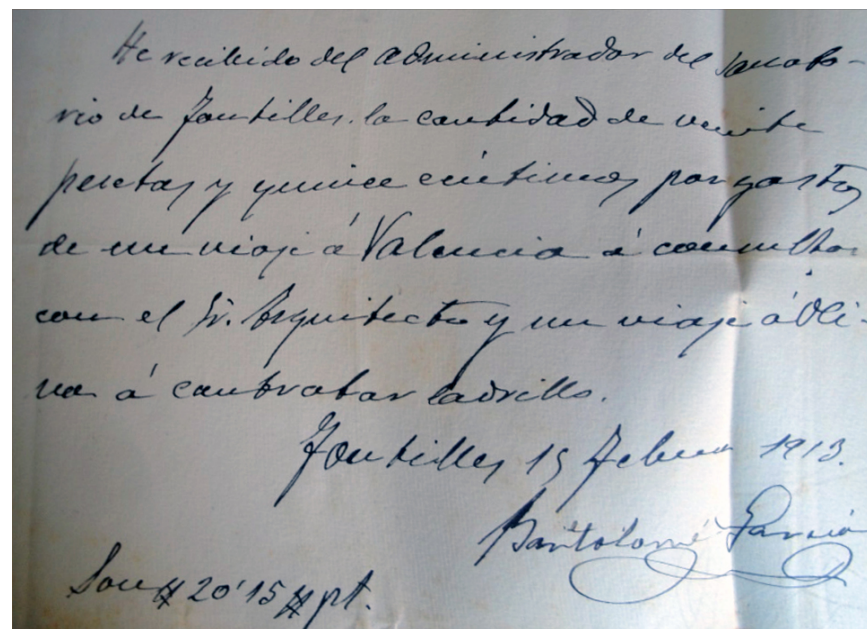 He recibido del administrador del sanato-
rio de Fontilles. la cantidad de veinte
pesetas y quince céntimos por gastos
de un viaje á Valencia á consultar
con el Sr. Arquitecto y un viaje á Oli-
va á contratar ladrillo.
Fontilles 15 Febrero 1913.
Bartolomé García
Son # 20'15 # pt.